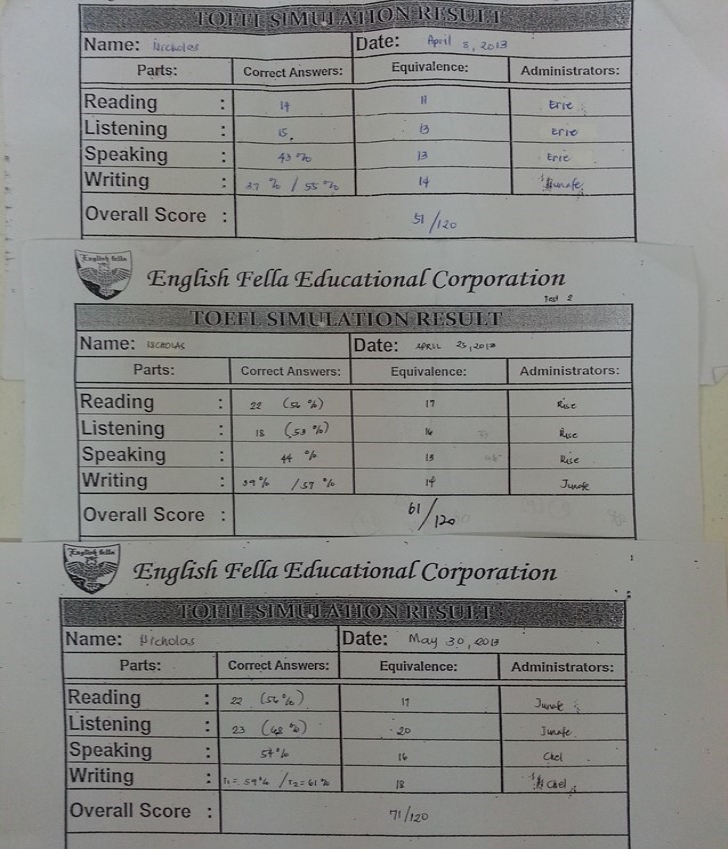 TOEFL SIMULATION RESULT
Name: Nicholas Date: April 8, 2013
Parts: Correct Answers: Equivalence: Administrators:
Reading : 14 11 Eric
Listening : 15 13 Eric
Speaking : 43% 13 Eric
Writing : 37 % / 55 % 14 Junafe
Overall Score : 51/120
English fella
English Fella Educational Corporation
Test 2
TOEFL SIMULATION RESULT
Name: NICHOLAS Date: APRIL 25, 2013
Parts: Correct Answers: Equivalence: Administrators:
Reading : 22 (56 %) 17 Rise
Listening : 18 (53 %) 16 Rise
Speaking : 44 % Rise
Writing : 39% / 57 % 14 Junafe
Overall Score : 61/120
English fella
English Fella Educational Corporation
TOEFL SIMULATION RESULT
Name: Nicholas Date: May 30, 2013
Parts: Correct Answers: Equivalence: Administrators:
Reading : 22 (56%) 17 Junafe
Listening : 23 (68 %) 20 Junafe
Speaking : 54% 16 Chel
Writing : T1= 59% / T2= 61% 18 Chel
Overall Score : 71/120